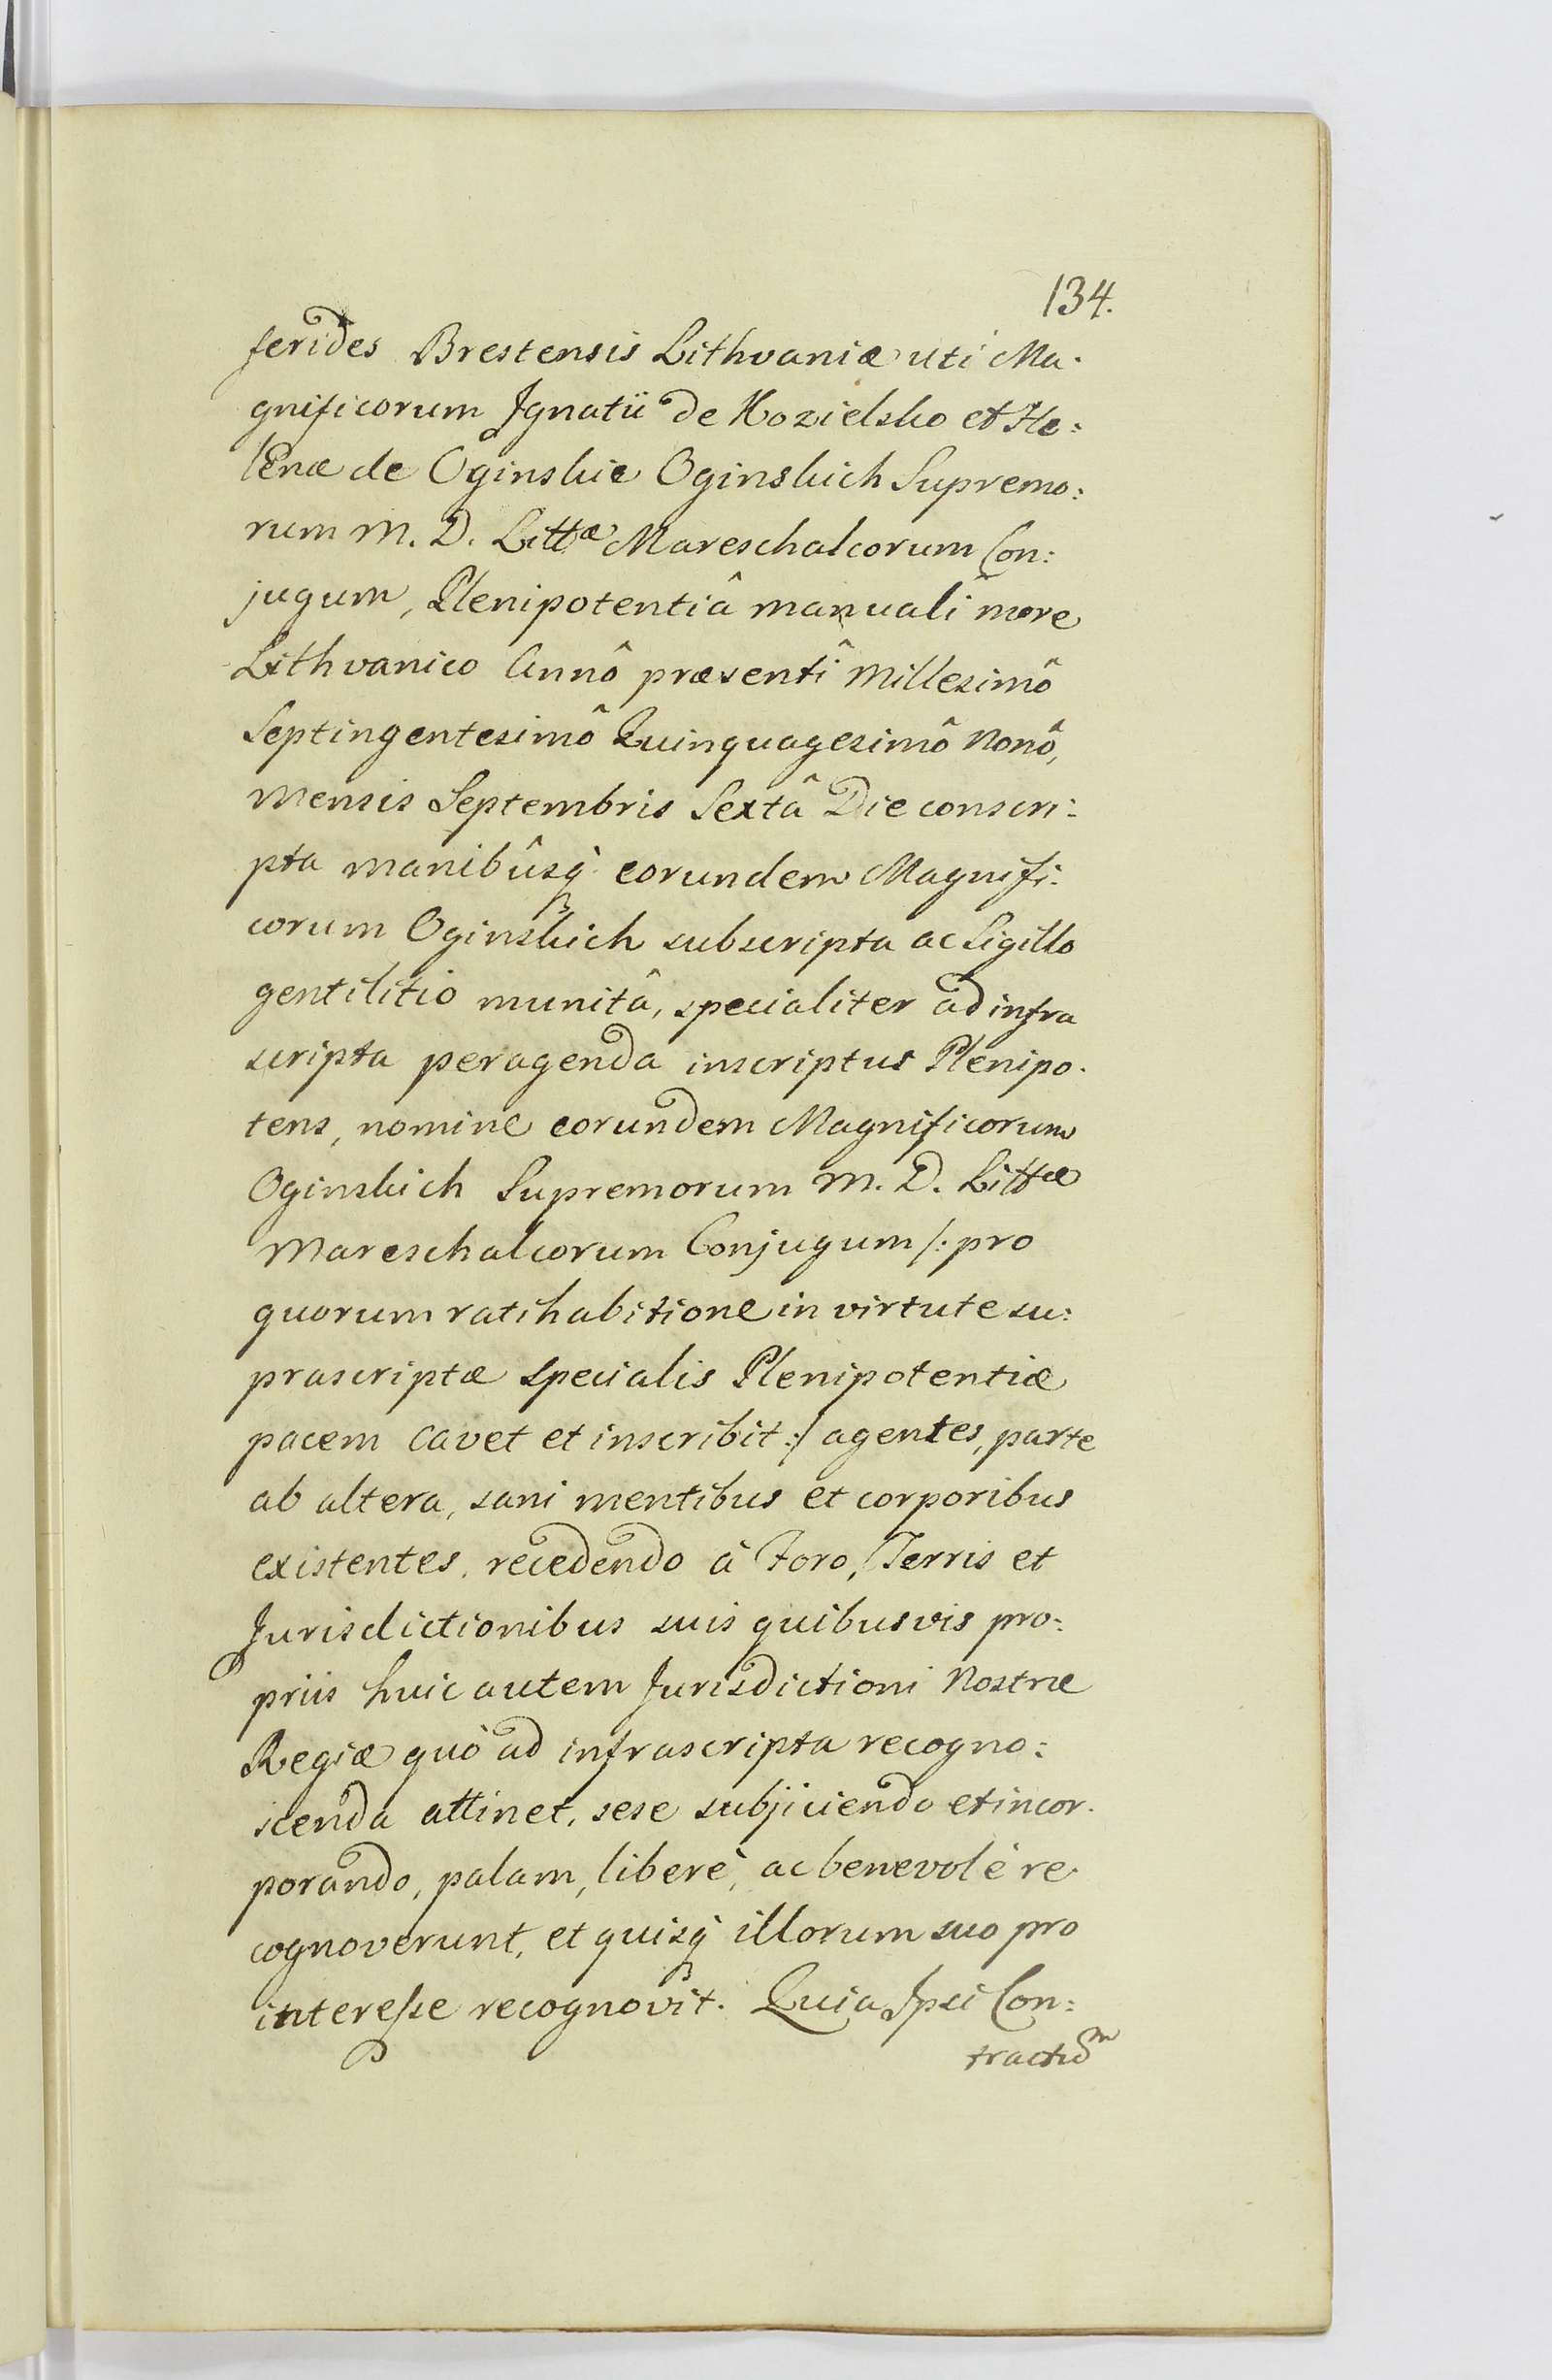 134.
ferides Brestensis Lithvaniæ uti Ma.
gnificorum Ignatii de Kozielsko et He:
lenæ de Oginskie Oginskich Supremo:
rum M. D. Littæ Mareschalcorum Con:
jugum, Plenipotentiâ manuali môre
Lithvanico Annô præsentî Millesimô
Septingentesimô Quinquagesimô Nonô,
Mensis Septembris Sextâ Die conscri:
pta manibûsq̀ eorundem Magnifi:
corum Oginskich subscripta ac Sigillo
gentilitio munitâ, specialiter ad infra
scripta peragenda inscriptus Plenipo.
tens, nomine eorundem Magnificorum
Oginskich Supremorum M. D. Littæ
Mareschalcorum Conjugum /: pro
quorum ratihabitione in virtute su:
prascriptæ specialis Plenipotentiæ
pacem cavet et inscribit :/ agentes, parte
ab altera, sani mentibus et corporibus
existentes, recedendo à Foro, Terris et
Jurisdictionibus suis quibusvis pro:
priis huic autem Jurisdictioni Nostræ
Regiæ quò ad infrascripta recogno:
scenda attinet, sese subjiciendo et incor.
porando, palam, liberè, ac benevolè re.
cognoverunt, et quisq̀ illorum suo pro
interesse recognovit. Quia Ipsi Con:
tractũ